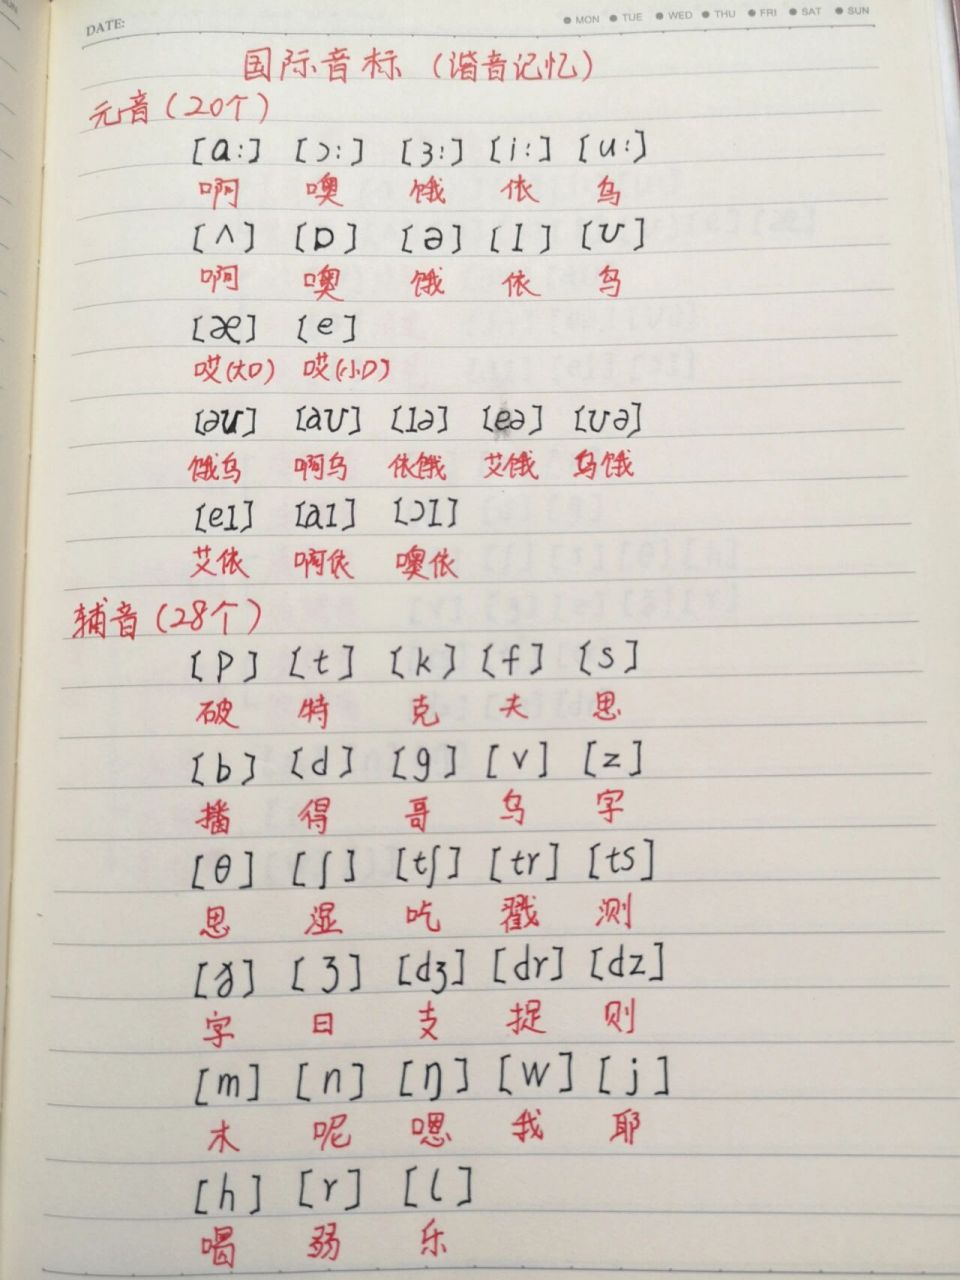 DATE: MON TUE WED THU FRI SAT SUN
国际音标（谐音记忆）
元音（20个）
[ɑ:] [ɔ:] [ɜ:] [i:] [u:]
啊 噢 饿 依 乌
[ʌ] [ɒ] [ə] [ɪ] [ʊ]
啊 噢 饿 依 乌
[æ] [e]
哎(大口) 哎(小口)
[əʊ] [aʊ] [ɪə] [eə] [ʊə]
饿乌 啊乌 依饿 艾饿 乌饿
[eɪ] [aɪ] [ɔɪ]
艾依 啊依 噢依
辅音（28个）
[p] [t] [k] [f] [s]
破 特 克 夫 思
[b] [d] [g] [v] [z]
播 得 哥 乌 字
[θ] [ʃ] [tʃ] [tr] [ts]
思 湿 吃 戳 测
[ð] [ʒ] [dʒ] [dr] [dz]
字 日 支 捉 则
[m] [n] [ŋ] [w] [j]
木 呢 嗯 我 耶
[h] [r] [l]
喝 弱 乐